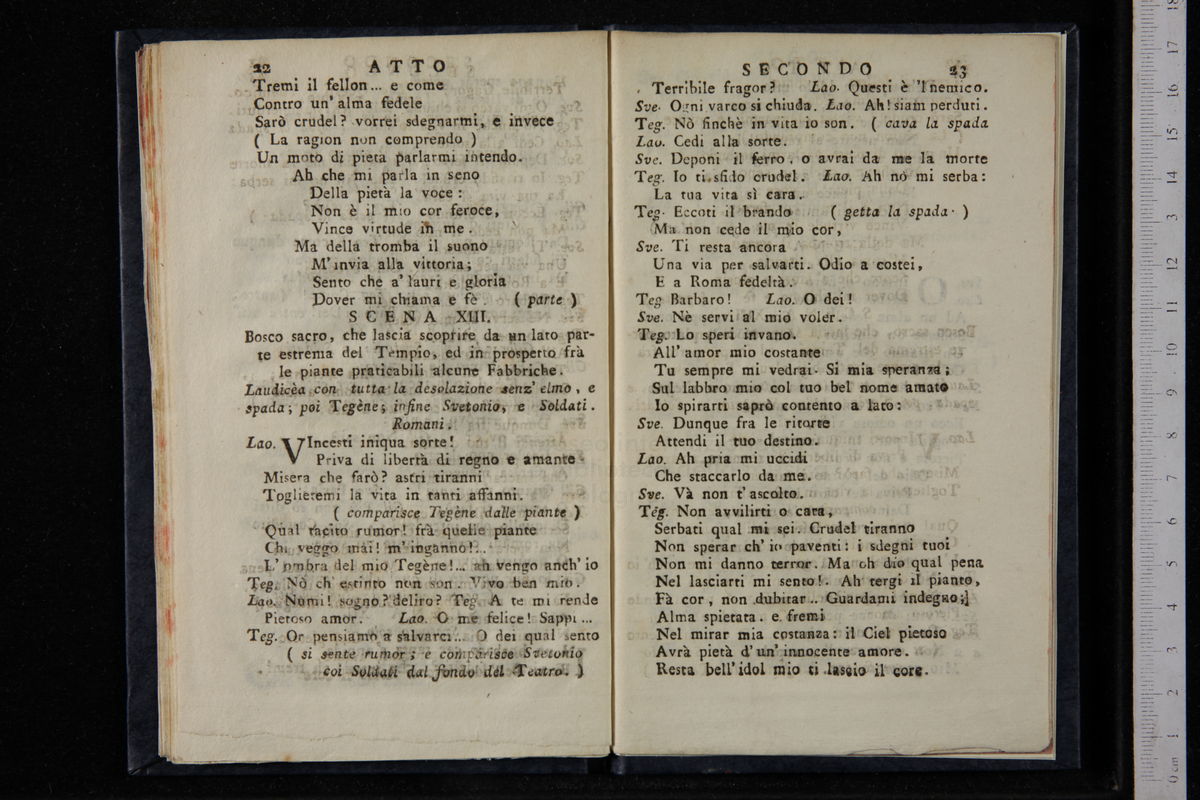 22 ATTO
Tremi il fellon... e come
Contro un' alma fedele
Sarò crudel? vorrei sdegnarmi, e invece
( La ragion non comprendo )
Un moto di pieta parlarmi intendo.
Ah che mi parla in seno
Della pietà la voce :
Non è il mio cor feroce,
Vince virtude in me .
Ma della tromba il suono
M' invia alla vittoria ;
Sento che a' lauri e gloria
Dover mi chiama e fè . ( parte )
SCENA XIII.
Bosco sacro, che lascia scoprire da un lato par-
te estrema del Tempio, ed in prospetto frà
le piante praticabili alcune Fabbriche.
Laudicèa con tutta la desolazione senz' elmo, e
spada; poi Tegène; infine Svetonio, e Soldati.
Romani.
Lao. VIncesti iniqua sorte!
Priva di libertà di regno e amante
Misera che farò? astri tiranni
Toglietemi la vita in tanti affanni.
( comparisce Tegène dalle piante )
Qual tacito rumor! frà quelle piante
Chi veggo mai! m' inganno!...
L' ombra del mio Tegène!... ah vengo anch' io
Teg. Nò ch' estinto non son. Vivo ben mio.
Lao. Numi! sogno? deliro? Teg. A te mi rende
Pietoso amor. Lao. O me felice! Sappi ...
Teg. Or pensiamo a salvarci... O dei qual sento
( si sente rumor; e comparisce Svetonio
coi Soldati dal fondo del Teatro. )
SECONDO 23
Terribile fragor? Lao. Questi è 'l nemico.
Sve. Ogni varco si chiuda. Lao. Ah! siam perduti.
Teg. Nò finchè in vita io son. ( cava la spada
Lao. Cedi alla sorte.
Sve. Deponi il ferro. o avrai da me la morte
Teg. Io ti sfido crudel. Lao. Ah nò mi serba:
La tua vita sì cara.
Teg. Eccoti il brando ( getta la spada. )
Ma non cede il mio cor,
Sve. Ti resta ancora
Una via per salvarti. Odio a costei,
E a Roma fedeltà.
Teg Barbaro! Lao. O dei!
Sve. Nè servi al mio voler.
Teg. Lo speri invano.
All' amor mio costante
Tu sempre mi vedrai. Si mia speranza;
Sul labbro mio col tuo bel nome amato
Io spirarti saprò contento a lato:
Sve. Dunque fra le ritorte
Attendi il tuo destino.
Lao. Ah pria mi uccidi
Che staccarlo da me.
Sve. Và non t' ascolto.
Teg. Non avvilirti o cara,
Serbati qual mi sei. Crudel tiranno
Non sperar ch' io paventi: i sdegni tuoi
Non mi danno terror. Ma oh dio qual pena
Nel lasciarti mi sento!. Ah tergi il pianto,
Fà cor, non dubitar .. Guardami indegno;]
Alma spietata. e fremi
Nel mirar mia costanza: il Ciel pietoso
Avrà pietà d' un' innocente amore.
Resta bell' idol mio ti lascio il core.